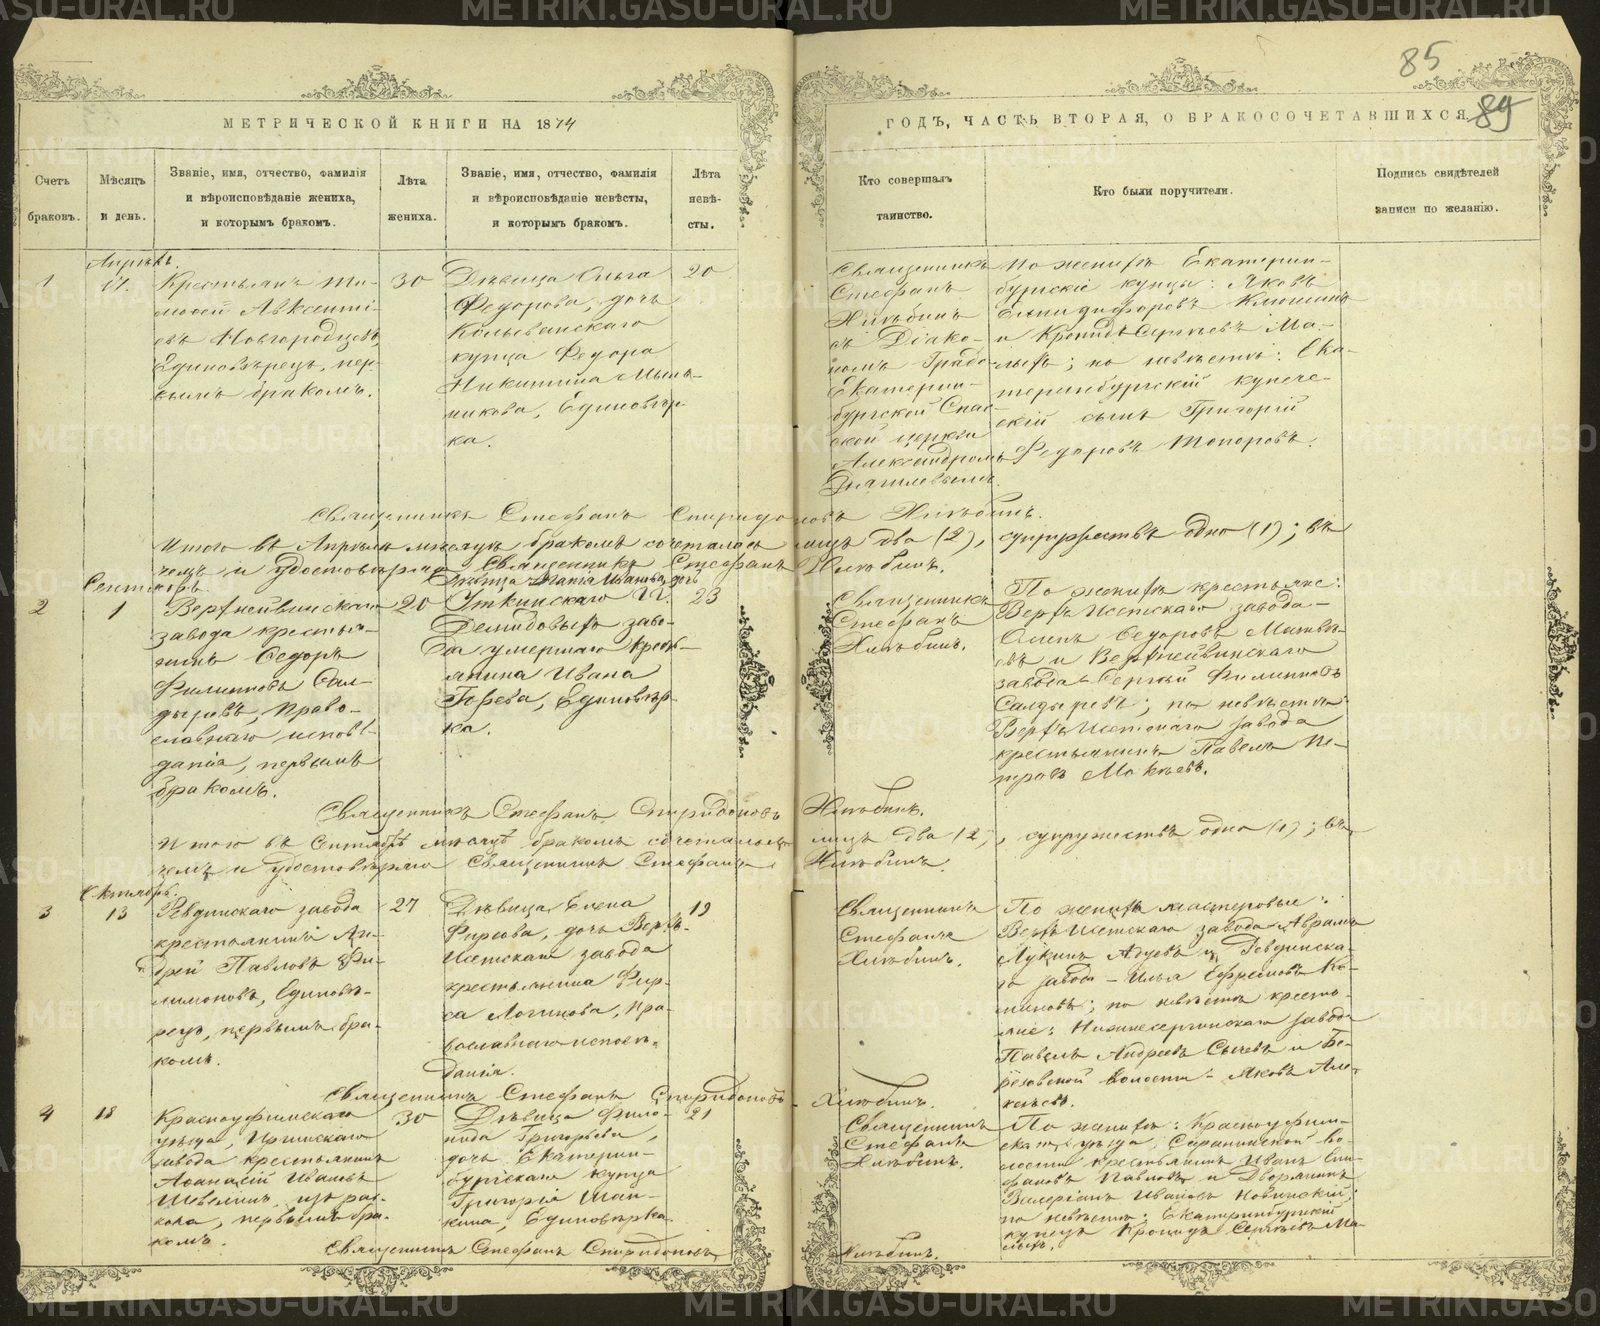 85
89
МЕТРИЧЕСКОЙ КНИГИ НА 1874
ГОДЪ, ЧАСТЬ ВТОРАЯ, О БРАКОСОЧЕТАВШИХСЯ
Счетъ
браковъ.
Мѣсяцъ
и день.
Званіе, имя, отчество, фамилія
и вѣроисповѣданіе жениха,
и которымъ бракомъ.
Лѣта
жениха.
Званіе, имя, отчество, фамилія
и вѣроисповѣданіе невѣсты,
и которымъ бракомъ.
Лѣта
невѣ-
сты.
Кто совершалъ
таинство.
Кто были поручители.
Подпись свидѣтелей
записи по желанію.
Апрѣль.
1
Крестьянъ Ти-
моѳей Авксенті-
евъ Новгородцевъ,
Единовѣрецъ, пер-
вымъ бракомъ.
30
Дѣвица Ольга
Федорова, дочь
Колыванскаго
купца Федора
Никитина
Единовѣр-
ка.
20
Священникъ
Стефанъ
Хлѣбинъ
съ Діако-
номъ Градо-
Екатерин-
бургской Спас-
ской церкви
Александромъ
По женихѣ Екатерин-
бургскіе купцы: Яковъ
Елпидифоровъ Клюшинъ
и Кронидъ Сергѣевъ Ма-
лыхъ; по невѣстѣ: Ека-
теринбургскій купече-
скій сынъ Григорій
Федоровъ Топоровъ.
Священникъ Стефанъ Спиридоновъ Хлѣбинъ.
Итого въ Апрѣлѣ мѣсяцѣ бракомъ сочеталось лицъ два (2), супружествъ одно (1); въ
чемъ и удостовѣряю Священникъ Стефанъ Хлѣбинъ.
Сентябрь.
2
1
Верхнейвинскаго
завода крестья-
нинъ Ѳедоръ
Филипповъ Сал-
дыревъ, право-
славнаго исповѣ-
данія, первымъ
бракомъ.
20
Дѣвица Иванова, дочь
Уткинскаго Гг.
Демидовыхъ заво-
да умершаго крест-
янина Ивана
Единовѣр-
ка.
23
Священникъ
Стефанъ
Хлѣбинъ.
По женихѣ крестьяне:
Верхъ Исетскаго завода —
Ѳедоровъ Матвѣ-
евъ и Верхнейвинскаго
завода Сергѣй Филипповъ
Салдыревъ; по невѣстѣ:
Верхъ Исетскаго завода
крестьянинъ Павелъ Пе-
тровъ Мокѣевъ.
Священникъ Стефанъ Спиридоновъ Хлѣбинъ.
Итого въ Сентябрѣ мѣсяцѣ бракомъ сочеталось лицъ два (2), супружествъ одно (1); въ
чемъ и удостовѣряю Священникъ Стефанъ Хлѣбинъ.
Октябрь.
3
13
Ревдинскаго завода
крестьянинъ Ан-
дрей Павловъ Фи-
лимоновъ, Единовѣ-
рецъ, первымъ бра-
комъ.
27
Дѣвица Елена
Фирсова, дочь Верхъ-
Исетскаго завода
крестьянина Фир-
са Логинова, Пра-
вославнаго исповѣ-
данія.
19
Священникъ
Стефанъ
Хлѣбинъ.
По женихѣ мастеровые:
Верхъ Исетскаго завода Аврамъ
Лукинъ и Ревдинска-
го завода — Илья Ефремовъ Ко-
миновъ; по невѣстѣ крестья-
не: Нижнесергинскаго завода
Павелъ Андреевъ Сычевъ и Бе-
резовской волости — Яковъ Але-
ксѣевъ.
Священникъ Стефанъ Спиридоновъ Хлѣбинъ.
4
18
Красноуфимскаго
уѣзда, Иргинскаго
завода крестьянинъ
Аѳанасій Ивановъ
Шевелинъ, изъ рас-
кола, первымъ бра-
комъ.
30
Дѣвица Фило-
нида Григорьева,
дочь Екатерин-
бургскаго купца
Григорія Шап-
кина, Единовѣрка.
21
Священникъ
Стефанъ
Хлѣбинъ.
По женихѣ: Красноуфим-
скаго уѣзда, Саранинской во-
лости крестьянинъ Иванъ Епи-
фановъ Павловъ и Дворянинъ
Валеріанъ Ивановъ Новинскій;
по невѣстѣ: Екатеринбургскій
купецъ Кронидъ Сергѣевъ Ма-
лыхъ.
Священникъ Стефанъ Спиридоновъ Хлѣбинъ.
METRIKI.GASU-URAL.RU